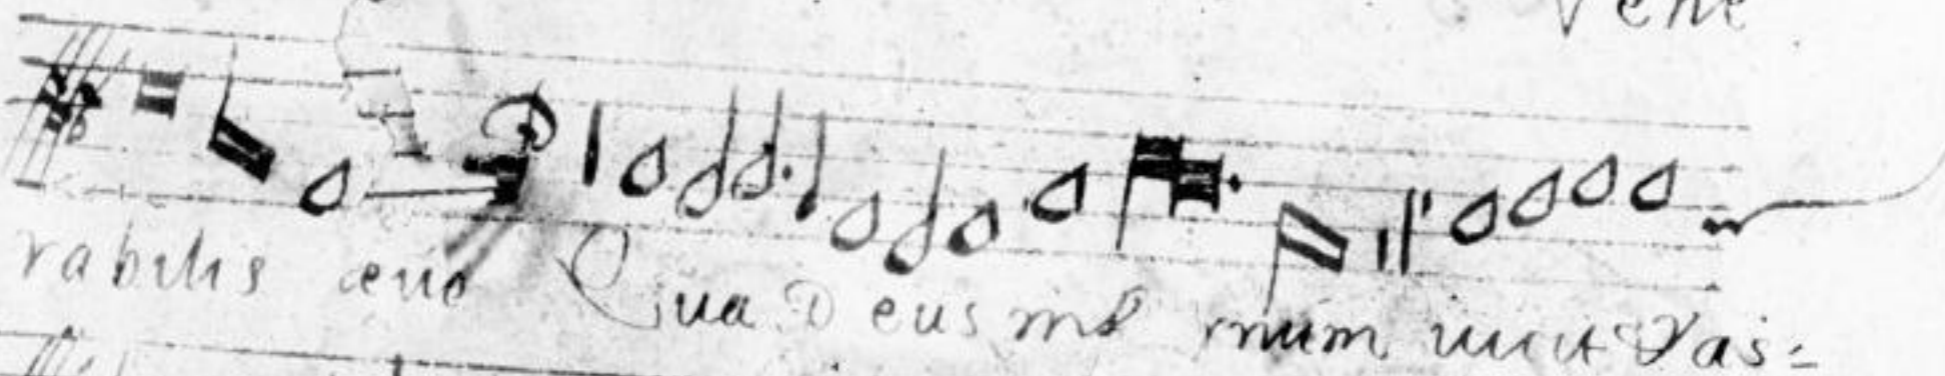 Vene
rabilis aeuo Qua Deus infernum uicit & as=